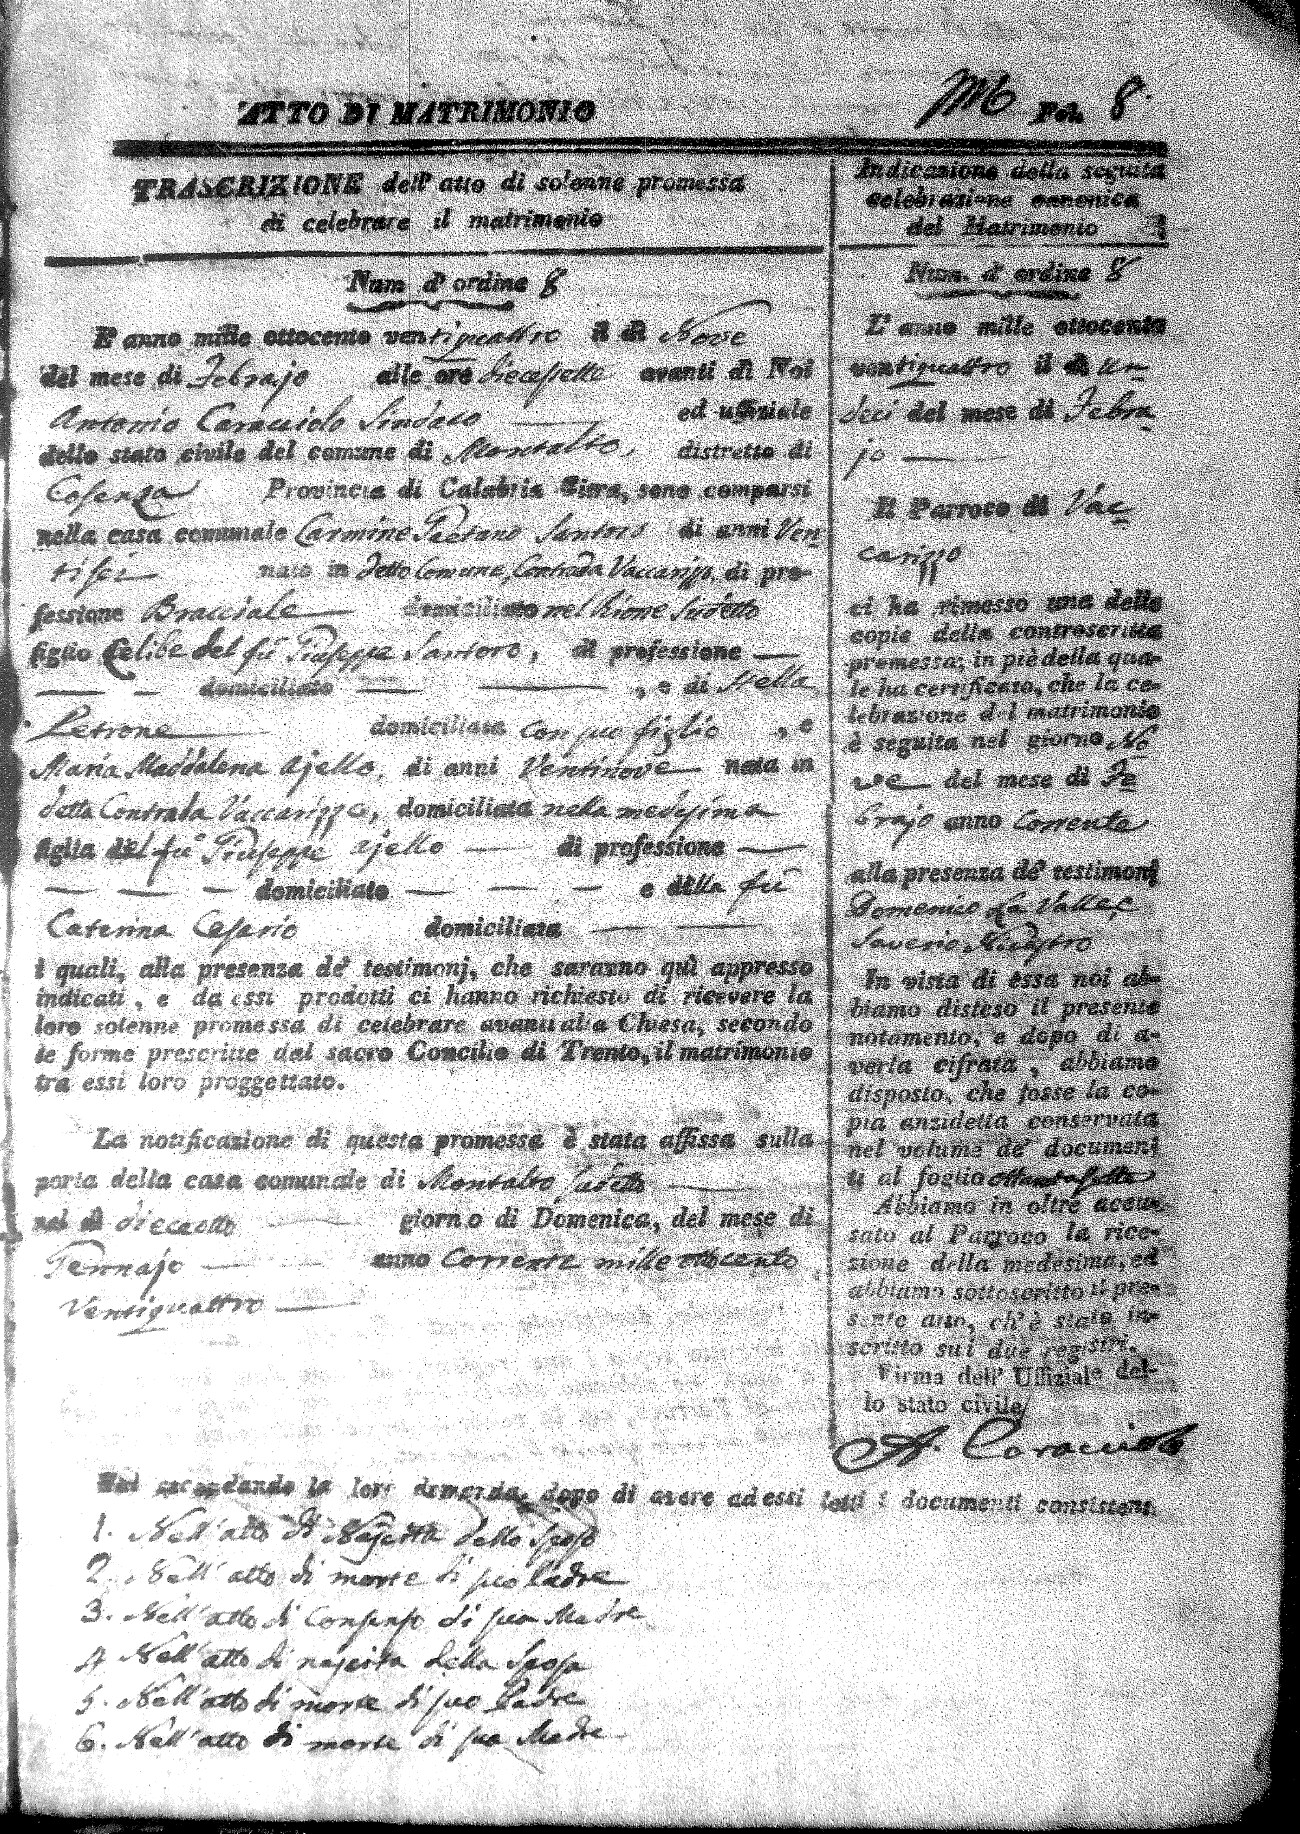 ATTO DI MATRIMONIO
Fol. 8
TRASCRIZIONE dell' atto di solenne promessa
di celebrare il matrimonio
Num d' ordine 8
L' anno mille ottocento ventiquattro il dì Nove
del mese di Febrajo alle ore diecesette avanti di Noi
Antonio Caracciolo Sindaco ed uffiziale
dello stato civile del comune di Montalto, distretto di
Cosenza Provincia di Calabria Citra, sono comparsi
nella casa comunale Carmine Gaetano Santoro di anni Ven
tisei nato in detto Comune, Contrada Vaccarizzo, di pro-
fessione Bracciale domiciliato nel Rione sudetto
figlio Celibe del fù Giuseppe Santoro, di professione —
— — domiciliato — — , e di Stella
Petrone domiciliata con suo figlio , e
Maria Maddalena Ajello, di anni Ventinove nata in
detta Contrada Vaccarizzo, domiciliata nella medesima
figlia del fù Giuseppe Ajello — di professione —
— — — domiciliato — — — e della fù
Caterina Cesario domiciliata — —
i quali, alla presenza de' testimonj, che saranno quì appresso
indicati, e da essi prodotti ci hanno richiesto di ricevere la
loro solenne promessa di celebrare avanti alla Chiesa, secondo
le forme prescritte dal sacro Concilio di Trento, il matrimonio
tra essi loro proggettato.
La notificazione di questa promessa è stata affissa sulla
porta della casa comunale di Montalto sudetto —
nel dì dieceotto — giorno di Domenica, del mese di
Gennajo — anno Corrente mille ottocento
Ventiquattro —
Noi secondando la loro domanda, dopo di avere ad essi letti i documenti consistenti
1. Nell'atto di Nascita dello Sposo
2. Nell'atto di morte di suo Padre
3. Nell'atto di Consenso di sua Madre
4 Nell'atto di nascita della Sposa
5. Nell'atto di morte di suo Padre
6. Nell'atto di morte di sua Madre
Indicazione della seguita
celebrazione canonica
del Matrimonio
Num. d' ordine 8
L' anno mille ottocento
ventiquattro il dì un-
deci del mese di Febra
jo —
Il Parroco di Vac
carizzo
ci ha rimesso una delle
copie della controscritta
promessa; in piè della qua-
le ha certificato, che la ce-
lebrazione del matrimonio
è seguita nel giorno No
ve del mese di Fe
brajo anno Corrente
alla presenza de' testimonj
Domenico La Valle, e
Saverio
In vista di essa noi ab-
biamo disteso il presente
notamento, e dopo di a-
verla cifrata, abbiamo
disposto, che fosse la co-
pia anzidetta conservata
nel volume de' documen-
ti al foglio ottantasette
Abbiamo in oltre accu-
sato al Parroco la rice-
zione della medesima, ed
abbiamo sottoscritto il pre-
sente atto, ch' è stato in-
scritto sui due registri.
Firma dell' Uffiziale del-
lo stato civile
A. Caracciolo